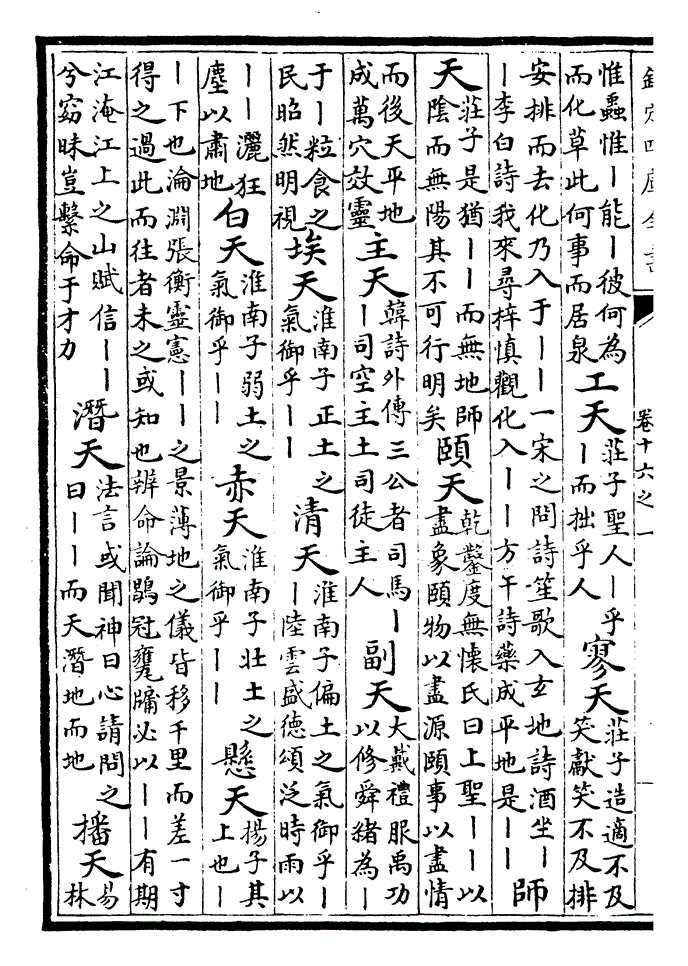 欽定四庫全書 卷十六之一
惟蟲惟丨能丨彼何為而化草此何事而居泉 工天 莊子聖人丨乎丨而拙乎人 寥天 莊子造適不及笑獻笑不及排
安排而去化乃入于丨丨一宋之問詩笙歌入玄地詩酒坐丨丨李白詩我來尋梓慎觀化入丨丨方午詩藥成平地是丨丨 師
天 莊子是猶丨丨而無地師陰而無陽其不可行明矣 頤天 乾鑿度無懷氏曰上聖丨丨以盡象頤物以盡源頤事以盡情
而後天平地成萬穴效靈 主天 韓詩外傳三公者司馬丨丨司空主土司徒主人 副天 大戴禮服禹功以修舜緒為丨
于丨粒食之民昭然明視 埃天 淮南子正土之氣御乎丨丨 清天 淮南子偏土之氣御乎丨丨陸雲盛德頌泛時雨以
丨丨灑狂塵以肅地 白天 淮南子弱土之氣御乎丨丨 赤天 淮南子壯土之氣御乎丨丨 懸天 揚子其上也丨
丨下也淪淵張衡靈憲丨丨之景薄地之儀皆移千里而差一寸得之過此而往者未之或知也辨命論鶡冠甕牖必以丨丨有期
江淹江上之山賦信丨丨兮窈昧豈繫命于才力 潛天 法言或聞神曰心請問之曰丨丨而天潛地而地 播天 易林